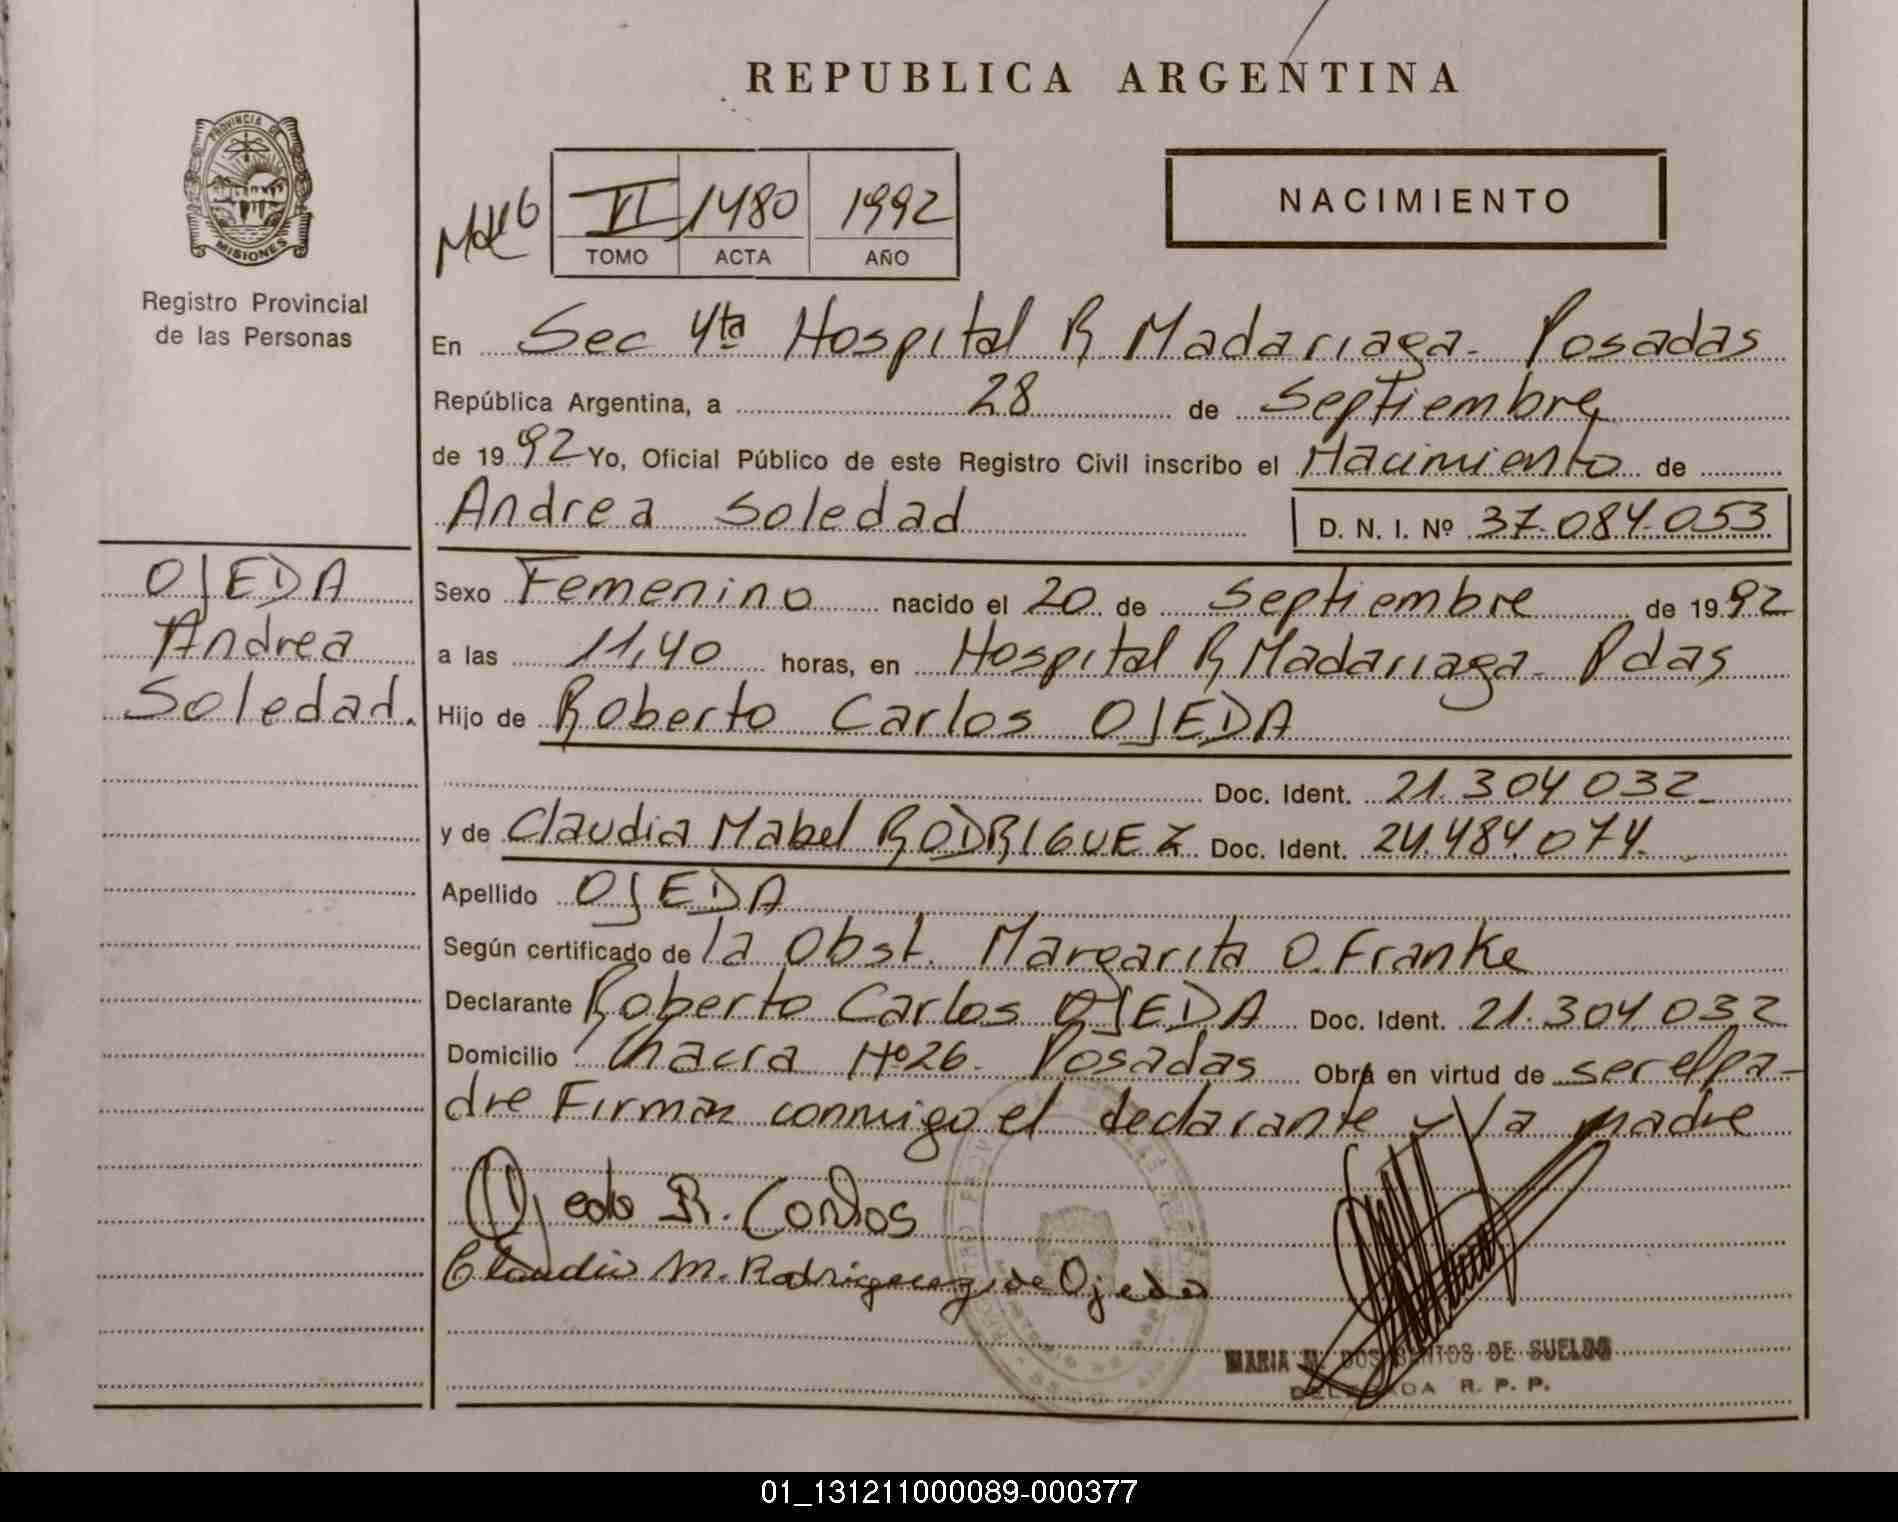 REPUBLICA ARGENTINA
PROVINCIA DE
MISIONES
Registro Provincial
de las Personas
VI 1480 1992
TOMO ACTA AÑO
NACIMIENTO
En Sec 4ta Hospital R Madariaga. Posadas
República Argentina, a 28 de Septiembre
de 1992 Yo, Oficial Público de este Registro Civil inscribo el Nacimiento de
Andrea Soledad D. N. I. Nº 37.084.053
OJEDA
Andrea
Soledad.
Sexo Femenino nacido el 20 de Septiembre de 1992
a las 11,40 horas, en Hospital R Madariaga - Pdas
Hijo de Roberto Carlos OJEDA
Doc. Ident. 21.304.032
y de Claudia Mabel RODRIGUEZ Doc. Ident. 24.484.074.
Apellido OJEDA
Según certificado de la Obst. Margarita O. Franke
Declarante Roberto Carlos OJEDA Doc. Ident. 21.304.032
Domicilio Chacra Nº26. Posadas Obra en virtud de ser el pa-
dre Firman conmigo el declarante y la madre
Ojeda R. Carlos
Claudia M. Rodriguez de Ojeda
MARIA M. DOS SANTOS DE SUELDO
DELEGADA R. P. P.
01_131211000089-000377